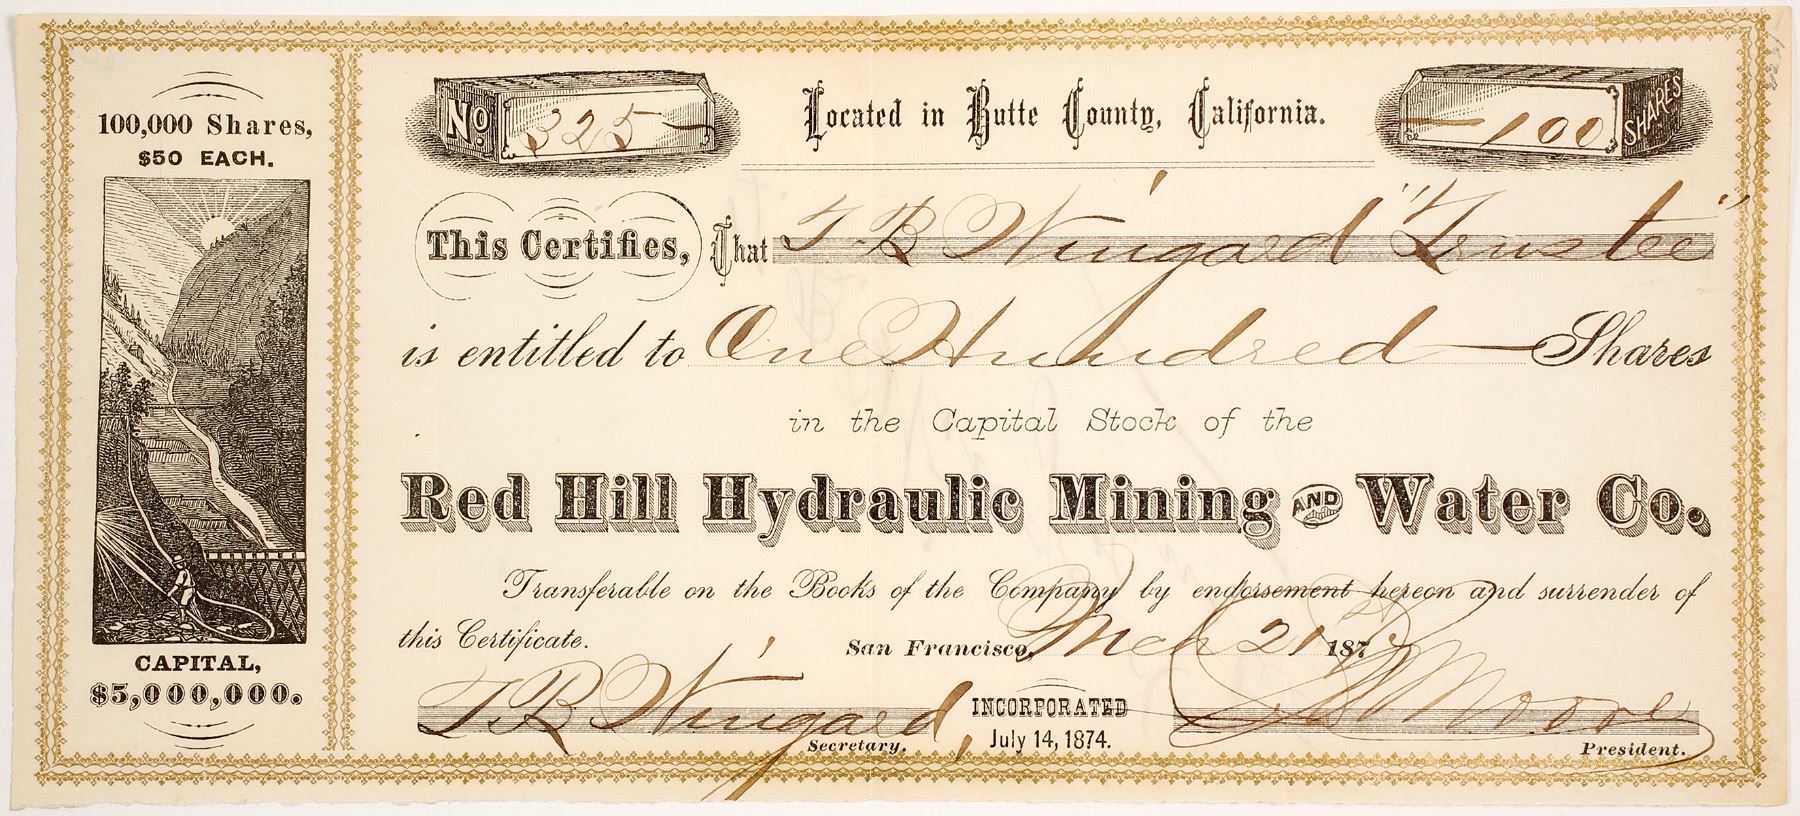 100,000 Shares,
$50 EACH.
CAPITAL,
$5,000,000.
No. 325
Located in Butte County, California.
100 SHARES
This Certifies, That T. B. Wingard "Trustee"
is entitled to One Hundred Shares
in the Capital Stock of the
Red Hill Hydraulic Mining AND Water Co.
Transferable on the Books of the Company by endorsement hereon and surrender of
this Certificate. San Francisco, Mch 21st 187
T. B. Wingard, Secretary.
INCORPORATED
July 14, 1874.
Moore President.